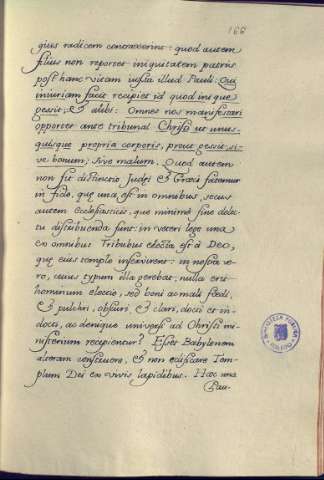 166
gius radicem contraxerint: quod autem
filius non reportet iniquitatem patris
post hanc vitam iuxta illud Pauli. Qui
iniuriam facit recipiet id quod inique
gessit, & alibi: Omnes nos manifestari
opportet ante tribunal Christi ut unus-
quisque propria corporis, prout gessit, si-
ve bonum, sive malum. Quod autem
non sit distinctio Judęi & Gręci fatemur
in fide, quę una est in omnibus, secus
autem Ecclesiasticis, que minimè sine delec-
tu distribuenda sunt: in veteri lege una
ex omnibus Tribubus electa est à Deo,
quę eius templo inserviret: in nostra ve-
ro, cuius typum illa gerebat, nulla erit
hominum electio, sed boni ac mali, fœdi,
& pulchri, obscuri, & clari, docti et in-
docti, ac denique universi ad Christi mi-
nisterium recipientur? Esset Babylonem
alteram construere, & non edificare Tem-
plum Dei ex vivis lapidibus. Hæc una
Pau-
BIBLIOTECA PUBLICA
TOLEDO